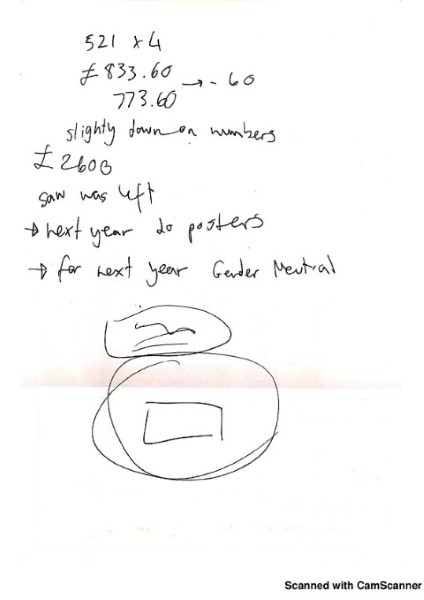 521 x 4
£833.60 → - 60
773.60
slighty down on numbers
£2600
saw was left
→ next year do posters
→ for next year Gender Neutral
Scanned with CamScanner